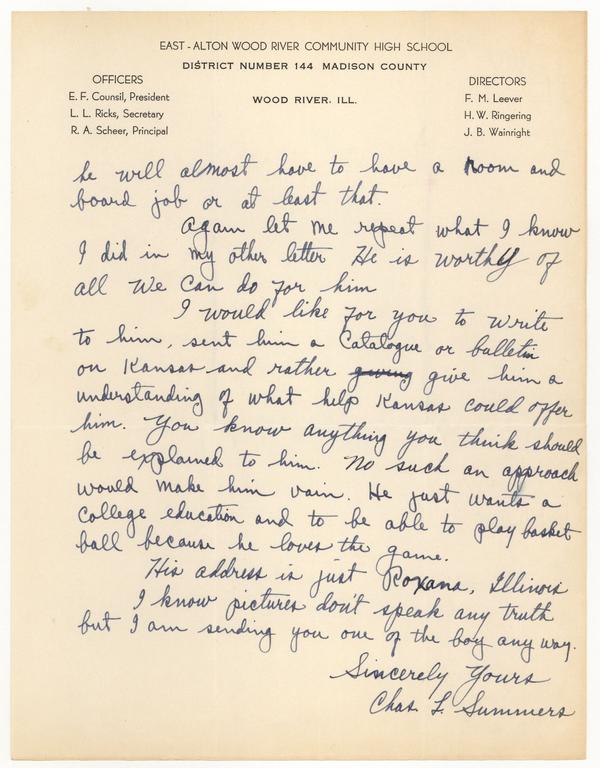 EAST-ALTON WOOD RIVER COMMUNITY HIGH SCHOOL
DISTRICT NUMBER 144 MADISON COUNTY
OFFICERS
E. F. Counsil, President
L. L. Ricks, Secretary
R. A. Scheer, Principal
WOOD RIVER, ILL.
DIRECTORS
F. M. Leever
H. W. Ringering
J. B. Wainright
he will almost have to have a room and
board job or at least that.
Again let me repeat what I know
I did in my other letter He is worthy of
all We Can do for him
I would like for you to write
to him, sent him a Catalogue or bulletin
on Kansas and rather giving give him a
understanding of what help Kansas could offer
him. You know anything you think should
be explained to him. No such an approach
would make him vain. He just wants a
College education and to be able to play basket
ball because he loves the game.
His address is just Roxana, Illinois
I know pictures don't speak any truth
but I am sending you one of the boy any way.
Sincerely Yours
Chas. F. Summers